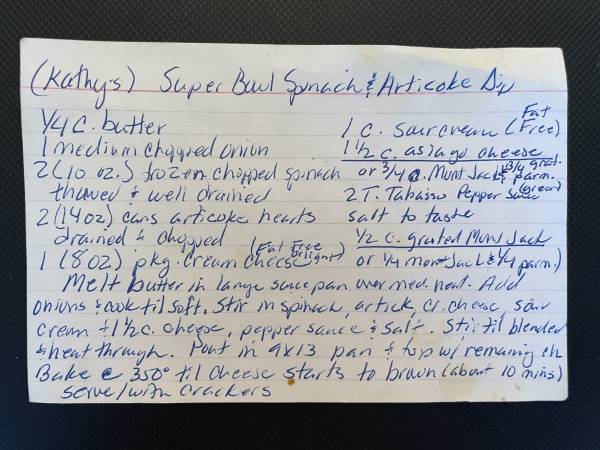 (Kathy's) Super Bowl Spinach & Articoke Dip
1/4 c. butter
1 medium chopped onion
2 (10 oz.) frozen chopped spinach
thawed & well drained
2 (14 oz) cans articoke hearts
drained & chopped
1 (8 oz) pkg. cream cheese (Fat Free or light)
1 c. sour cream (Fat Free)
1 1/2 c. asiago cheese
or 3/4 c. Mont Jack & 3/4 grat. parm.
2 T. Tabasco Pepper Sauce (green)
salt to taste
1/2 c. grated Mont Jack
or 1/4 mont Jack & 1/4 parm.)
Melt butter in large sauce pan over med. heat. Add
onions & cook til soft. Stir in spinach, artick, cr. cheese, sour
cream + 1 1/2 c. cheese, pepper sauce & salt. Stir til blended
& heat through. Pour in 9x13 pan & top w/ remaining ch
Bake @ 350° til cheese starts to brown (about 10 mins)
serve/with crackers